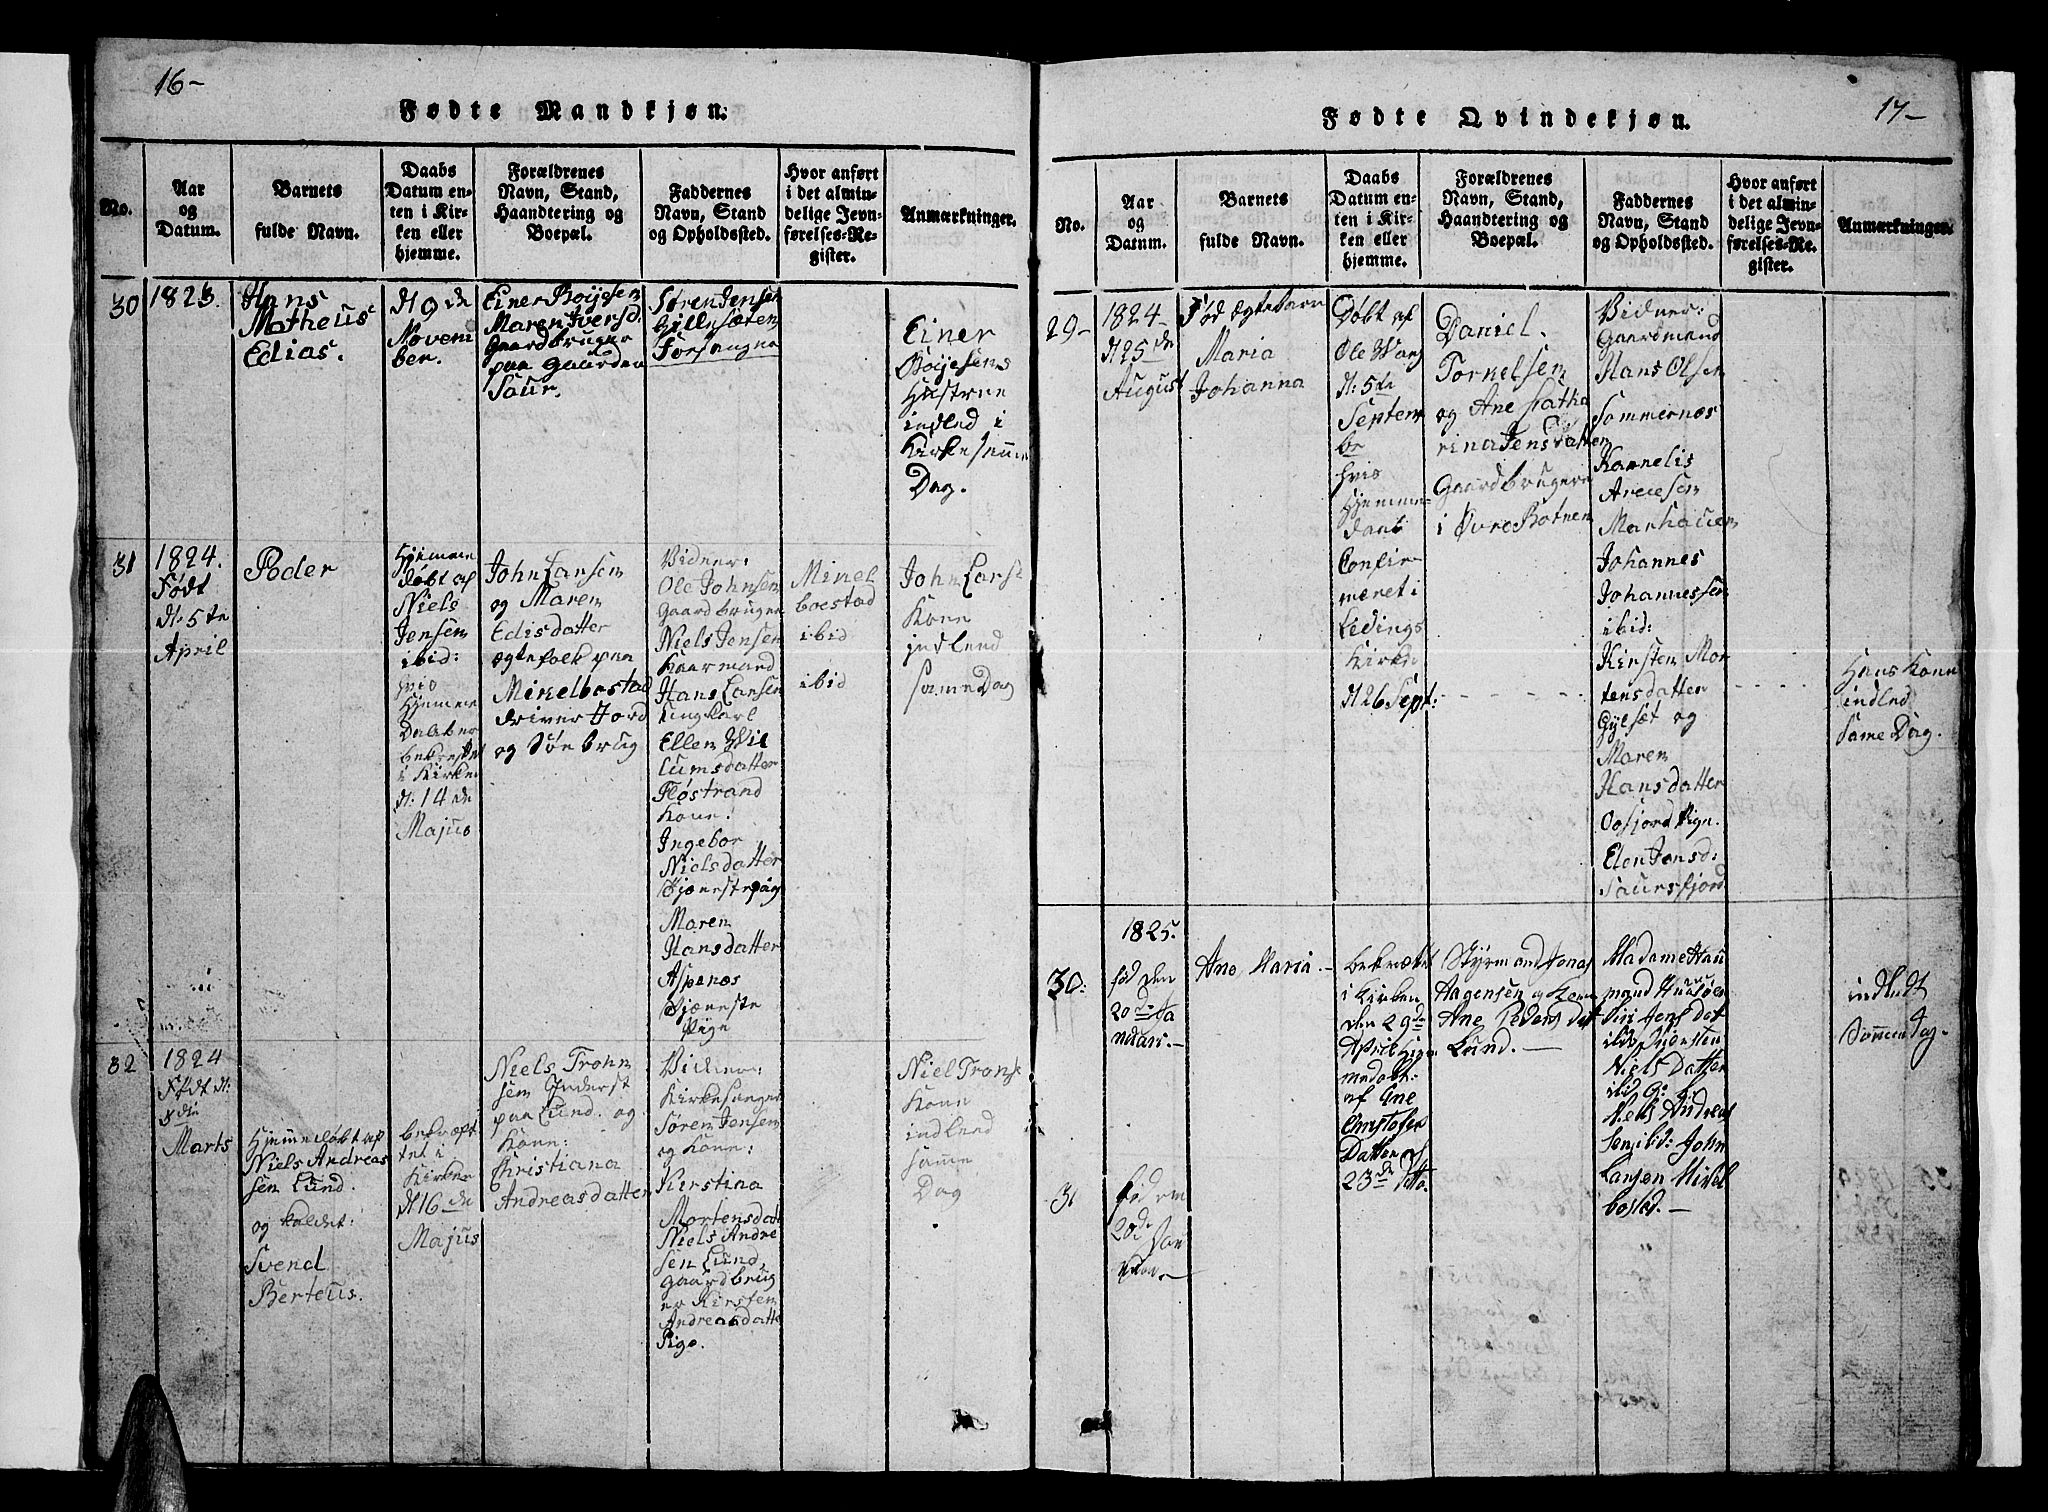 16-
Fødte Mandkjøn:
No.
Aar
og
Datum.
Barnets
fulde Navn.
Daabs
Datum en-
ten i Kir-
ken eller
hjemme.
Forældrenes
Navn, Stand,
Haandtering og
Boepæl.
Faddernes
Navn, Stand
og Opholdssted.
Hvor anført
i det almin-
delige Jevn-
førelses-Re-
gister.
Anmærkninger.
30
1823.
Hans
Matheus
Edias.
d: 9 de
Novem
ber.
Einer Boyesen
Maren Iversd:
Gaardbruger
paa Gaarden
Saur.
Søren Jensen
Gillesæten
Forsanger
Einer
Boyesens
Hustrue
indled i
Kirke samme
Dag.
31
1824.
Født
d: 5te
April
Peder
Hjemme
døbt af
Niels
Jensen
ibid:
hvis
Hjemme
Daab er
bekræftet
i Kirken
d: 14 de
Majus
John Larsen
og Maren
Edisdatter
egtefolk paa
Mikelbostad
driver Jord
og Søe brug
Vidner:
Ole Johnsen
Gaardbruger
Niels Jensen
Kaarmand
Hans Larsen
Ungkarl
Ellen Wil
lumsdatter
Fløstrand
Kone:
Ingebor
Nielsdatter
Tjenestepige
Maren
Hansdatter
Aspenæs
Tjeneste
Pige
Mikel
boestad
ibid
ibid
John Lars:
Kone
indlend
same Dag
32
1824
Født d:
8 de
Marts
Hjemmedøbt af
Niels Andreas
sen Lund.
og kaldet:
Svend
Berteus.
bekræft
tet i
Kirken
d: 16 de
Majus
Niels Trohn
sen Inderst
paa Lund. og
Kone:
Christiana
Andreasdatter
Vidner:
Kirkesanger
Søren Jensen
og Kone:
Kerstina
Mortensdat
Niels Andre
sen Lund,
Gaardbrug
er Kirsten
Andreasdatte
Pige.
Niel Trons:
Kone
indlend
samme
Dag
17-
Fødte Qvindekjøn.
No.
Aar
og
Datum.
Barnets
fulde Navn.
Daabs
Datum en-
ten i Kir-
ken eller
hjemme.
Forældrenes
Navn, Stand,
Haandtering og
Boepæl.
Faddernes
Navn, Stand
og Opholdssted.
Hvor anført
i det almin-
delige Jevn-
førelses-Re-
gister.
Anmærkninger.
29-
1824-
d: 25 de
August
Fød Egtebarn
Maria
Johanna
Døbt af
Ole
d: 5te
Septem
ber
hvis
Hjemme-
daab
Confir
meret i
Ledings
Kirke
d: 26 Sept:
Daniel
Torkelsen
og Ane Katha
rina Jensdatter
Gaardbruger
i Øvre Botnen
Vidner:
Gaardmand
Hans Olsen
Sommernæs
Kornelis
Arnesen
Marhaugen
Johannes
Johannessen
ibid:
Kirsten Mor
tensdatter
Gylset og
Maren
Hansdatter
Oosfjord Pige.
Elen Jensd:
Saursfjord
Hans Kone
indled
same Dag.
30:
1825.
fød den
20de Ja
nuari.-
Ane Maria.-
bekræftet
i Kirken
den 29de
April Hjem
medøbt:
af Ane
Christofer
Datter d
23de Dto.
Styrmand Jonas
Aagensen og Kone
Ane Peders Dat
Lund.-
Madame Hau
mand Huusøen
Siri Jens Dat
ibid Kiersten
Niels Datter
ibid G: br
Niels Andreas
sen ibid: John
Larsen Mikel
bosted.-
indledt
Samme Dag.-
31
Fød em
20de Jan
uar.-